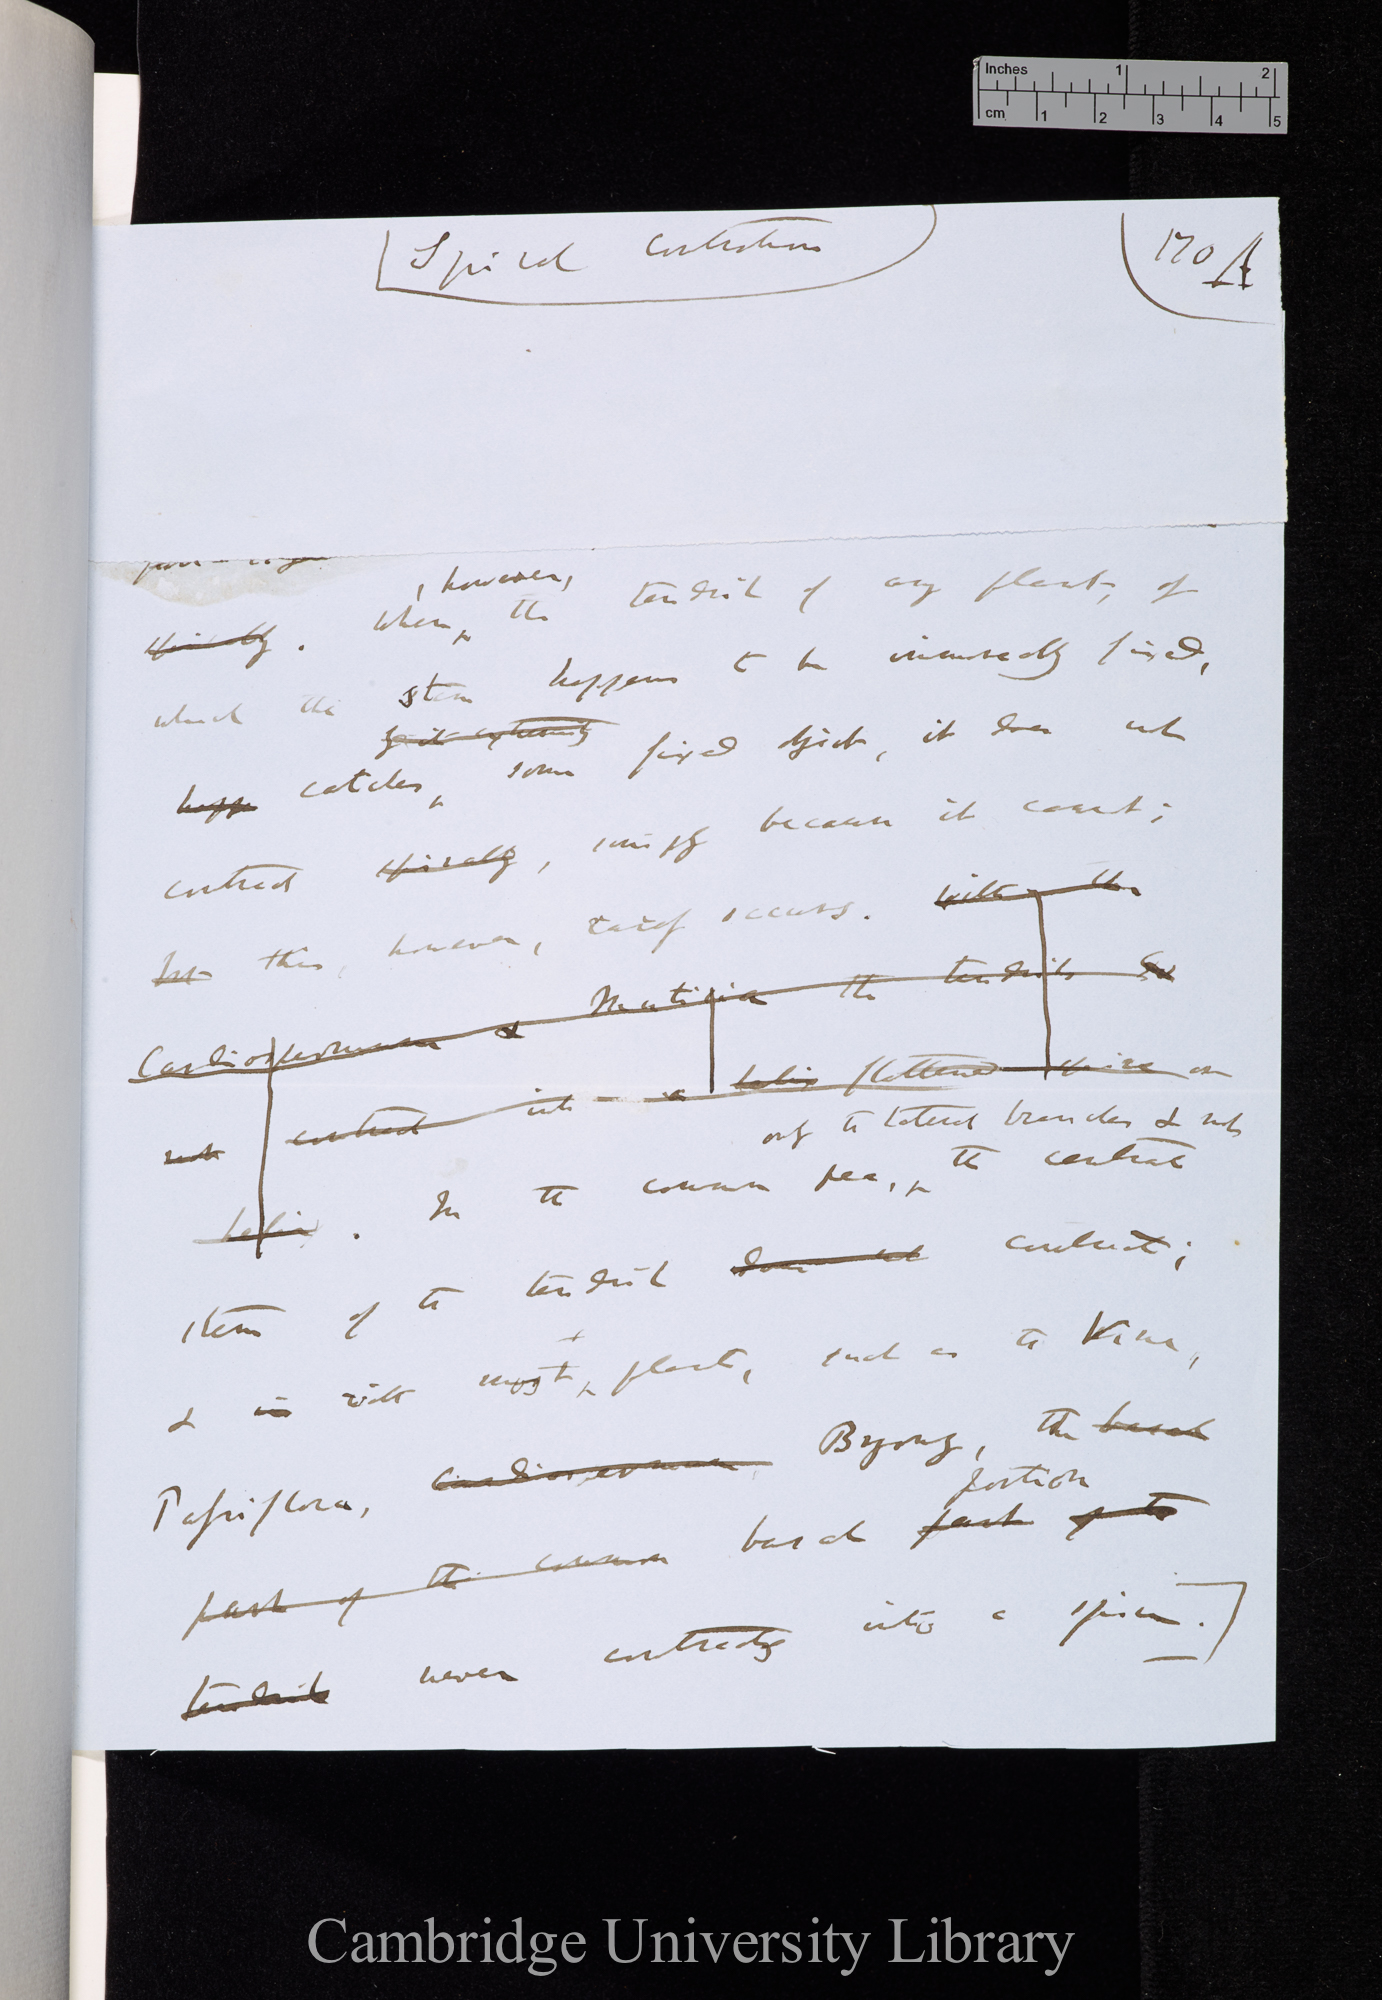 Inches 1 2
cm 1 2 3 4 5
Spiral contraction
170 A
, however,
spirally. When the tendril of any plant, of
which the stem happens to be immoveably fixed,
by its extremity
happ catches some fixed object, it does not
contract spirally, simply because it cannot;
but this, however, rarely occurs. With the
Cardiospermum & Mutisia the tendrils do
not contract into a helix flattened spire or
only the lateral branches & not
helix. In the common pea, the central
stem of the tendril does not contracts;
& in with most plants, such as the Vine,
Passiflora, Cardiospermum, Bryony, the basal
portion
part of the common basal part of the
tendrils never contracts into a spire.
Cambridge University Library